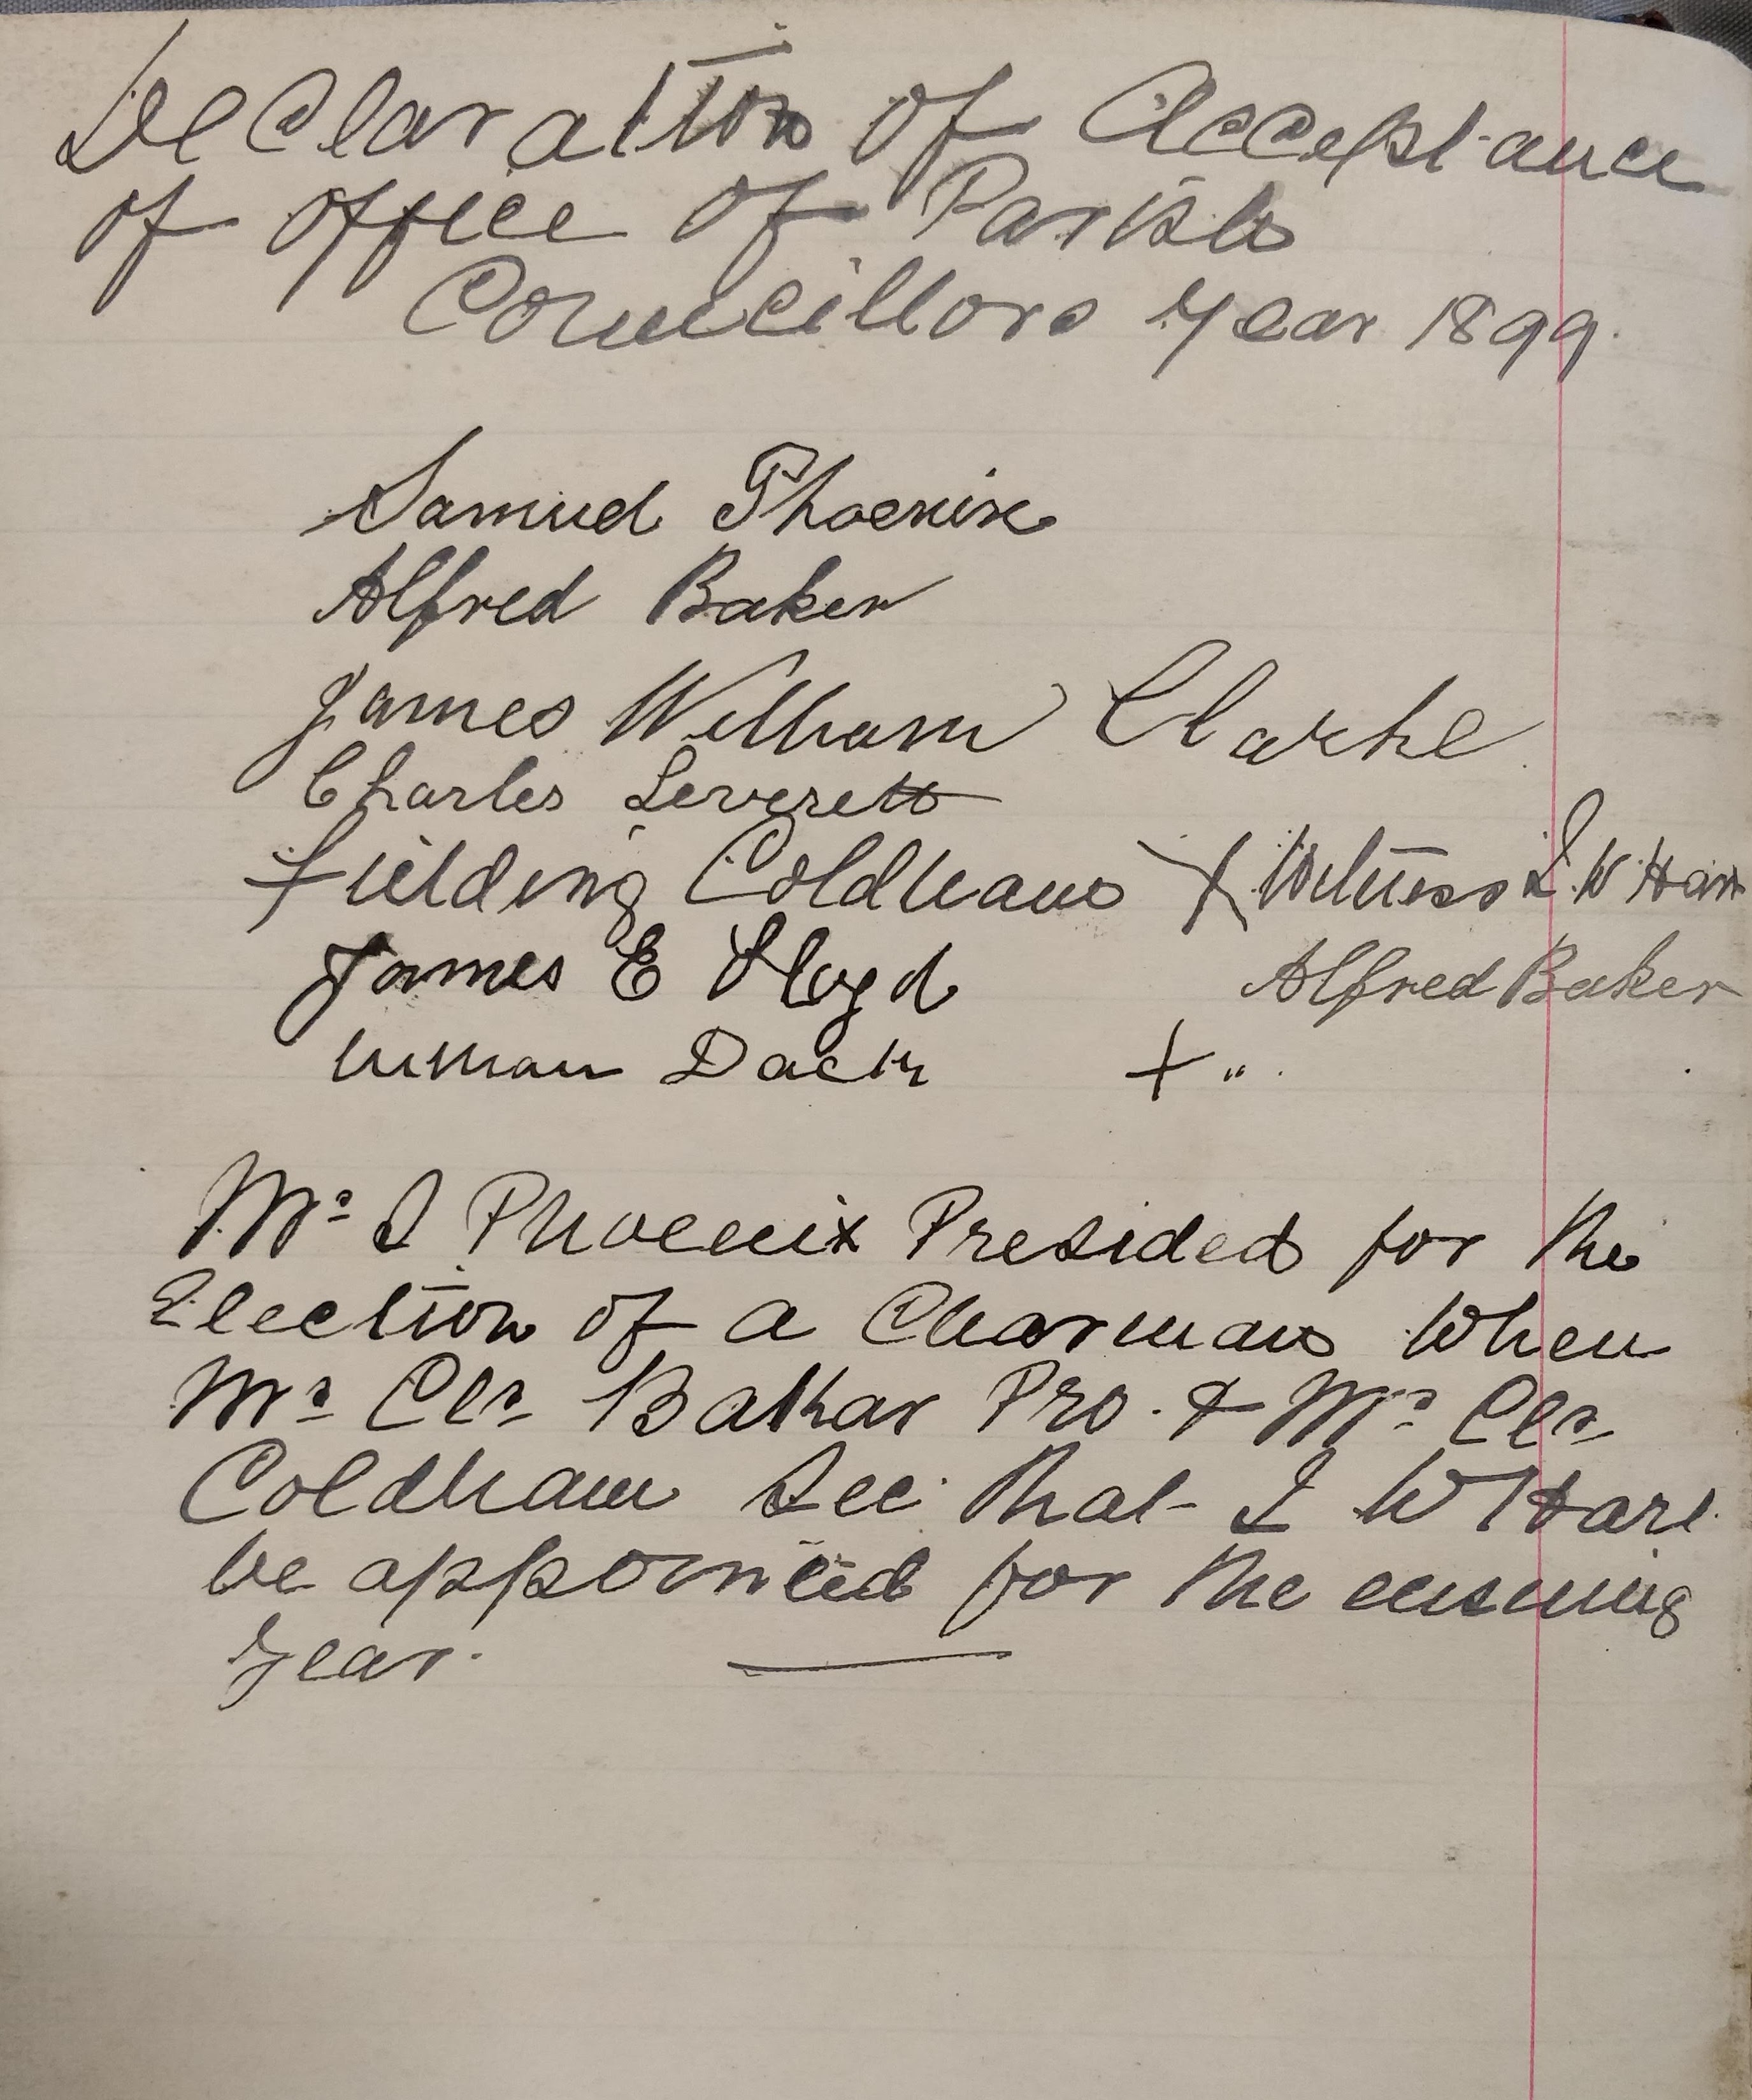 Declaration of Acceptance
of office of Parish
Councillors Year 1899.
Samuel Phoenix
Alfred Baker
James William Clarke
Charles Leverett
Fielding Coldham X Witness I. W Hart
James E Lloyd Alfred Baker
William Dack X " .
Mr S Phoenix Presided for the
Election of a Charman When
Mr Clr Bakar Pro. & Mr Clr
Coldham Sec. that I W Hart
be appointed for the ensuing
Year.